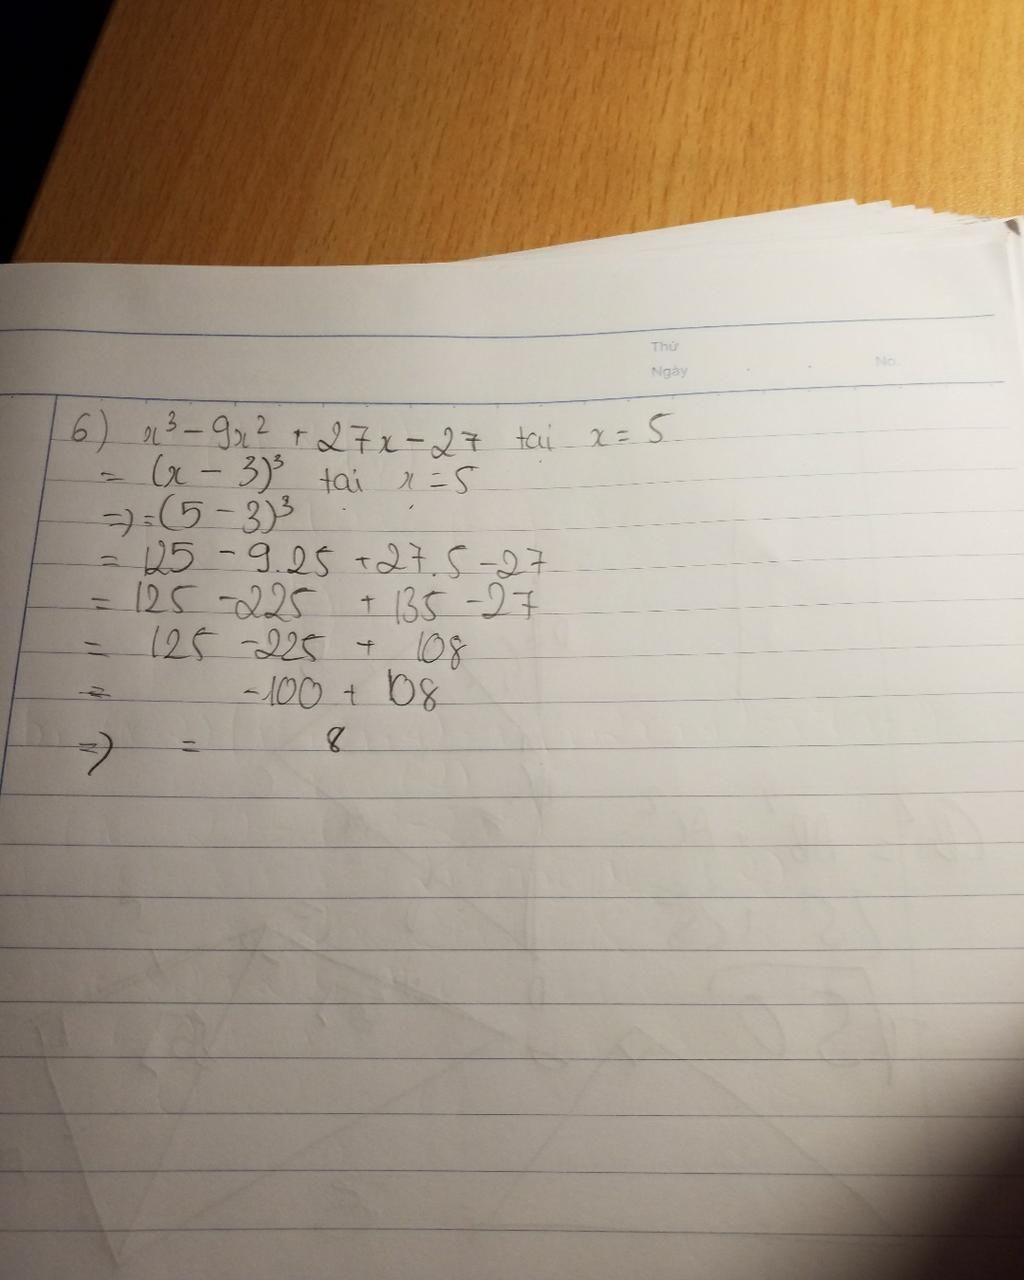 Thứ
Ngày
No.
6) x³ - 9x² + 27x - 27 tại x = 5
= (x - 3)³ tại x = 5
=> = (5 - 3)³
= 125 - 9.25 + 27.5 - 27
= 125 - 225 + 135 - 27
= 125 - 225 + 108
= -100 + 108
=> = 8